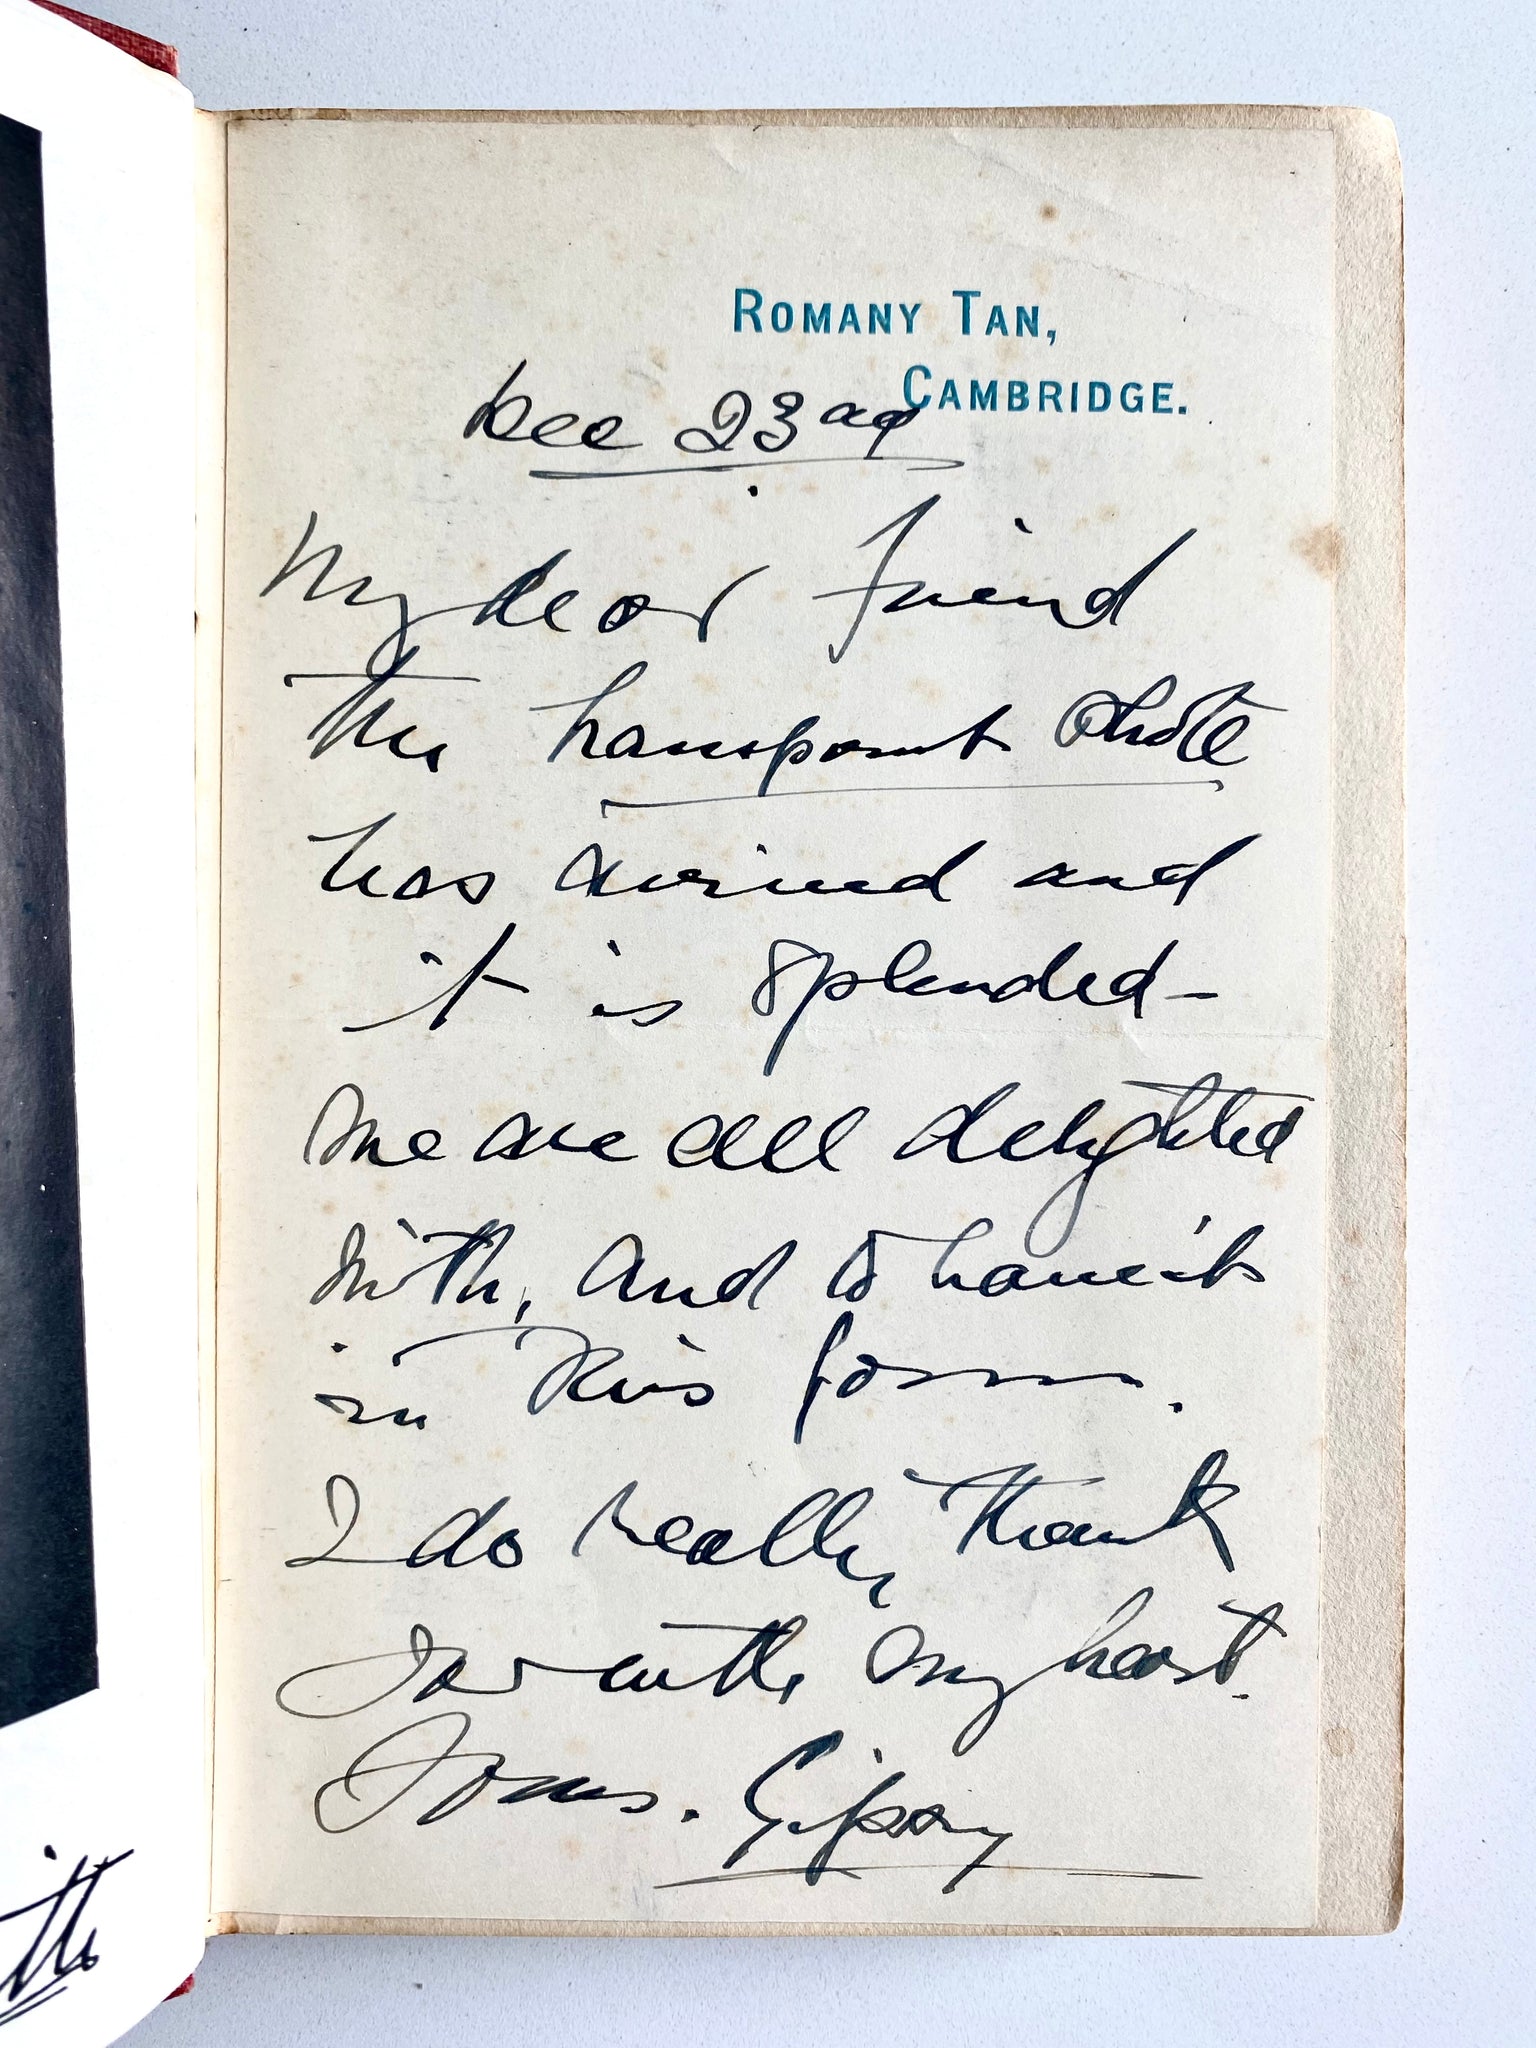 ROMANY TAN,
CAMBRIDGE.
Dec 23rd
My dear friend
The transparent Photo
has arrived and
it is splended -
we are all delighted
with, and to have it
in this form.
I do really thank
You with my heart.
Yours. Gipsy
ith